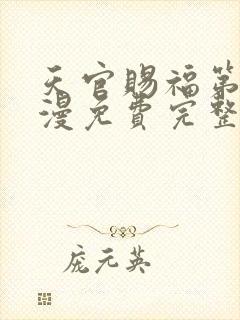 天官賜福第
漫免費完整
庞元英